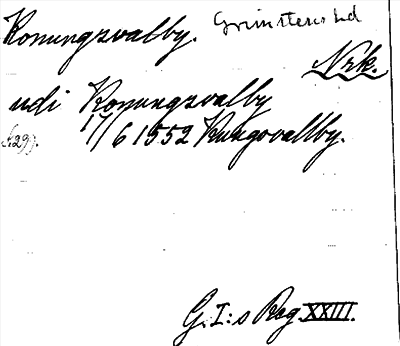 Konungsvalby. Grimstens hd
Nrk.
udi Konungzvalby
s. 29). 17/6 1552 Kungovallby.
G. I:s Reg. XXIII.